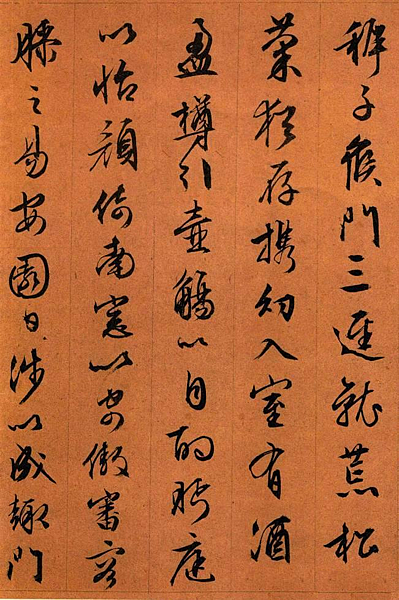 稚子候門三逕就荒松
菊猶存携幼入室有酒
盈樽引壺觴以自酌眄庭
以怡顏倚南窻以寄傲審容
膝之易安園日涉以成趣門